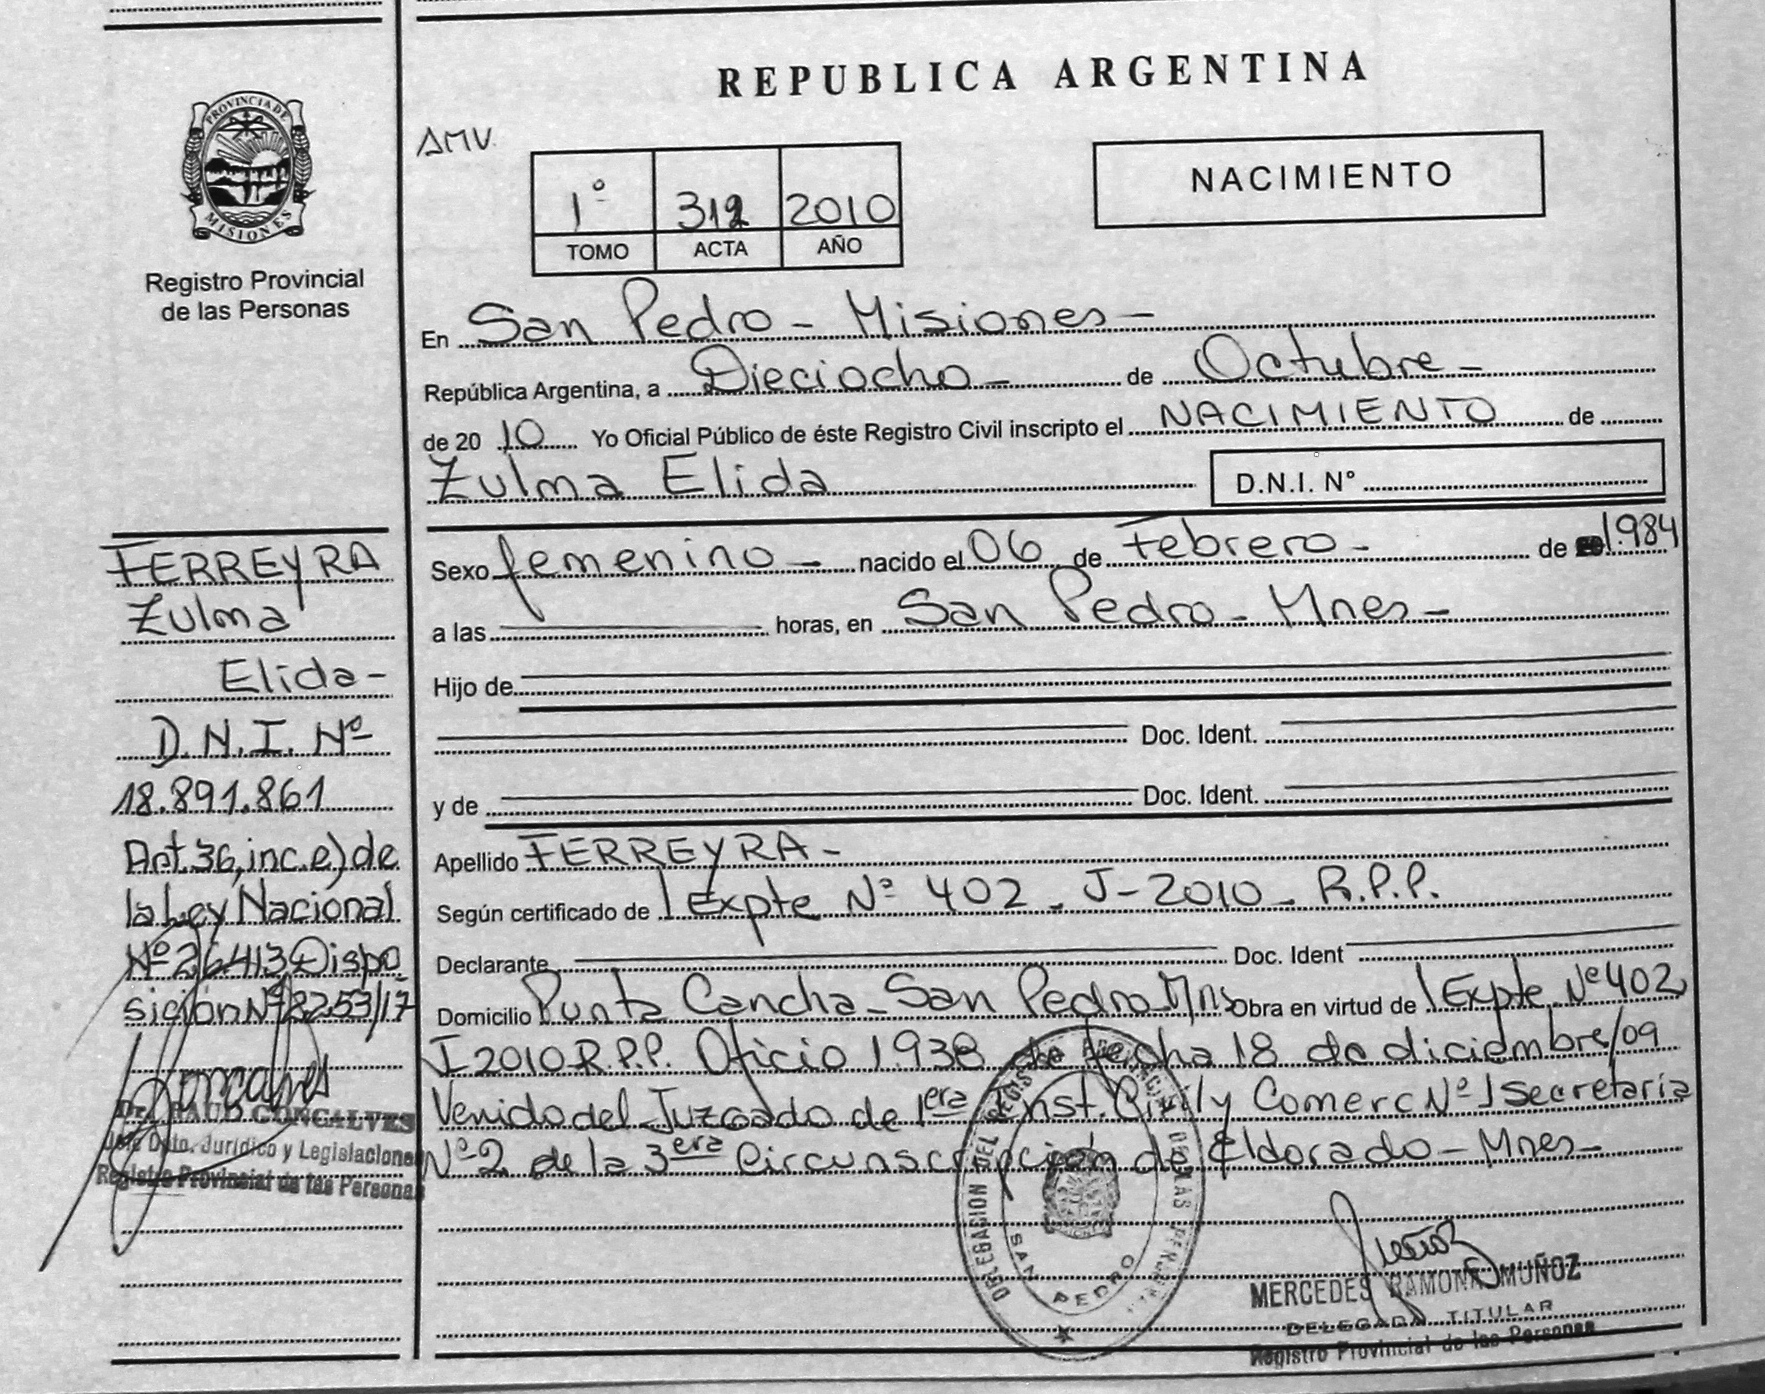 REPUBLICA ARGENTINA
PROVINCIA DE
MISIONES
Registro Provincial
de las Personas
AMV.
1º 312 2010
TOMO ACTA AÑO
NACIMIENTO
En San Pedro - Misiones -
República Argentina, a Dieciocho - de Octubre -
de 20 10 Yo Oficial Público de éste Registro Civil inscripto el NACIMIENTO de
Zulma Elida D.N.I. Nº
FERREYRA
Zulma
Elida -
D.N.I. Nº
18.891.861
Art. 36, inc. e) de
la Ley Nacional
Nº 26413 Dispo
sición Nº 8253/17
Goncalves
Dr. RAUL GONCALVES
Jefe Dpto. Jurídico y Legislaciones
Registro Provincial de las Personas
Sexo femenino - nacido el 06 de Febrero - de 1.984
a las horas, en San Pedro - Mnes -
Hijo de
Doc. Ident.
y de Doc. Ident.
Apellido FERREYRA -
Según certificado de Expte Nº 402 - J-2010 - R.P.P.
Declarante Doc. Ident
Domicilio Punta Cancha - San Pedro Mns Obra en virtud de Expte. Nº 402
J 2010 R.P.P. Oficio 1.938 de fecha 18 de diciembre/09
Venido del Juzgado de 1era Inst. Civil y Comerc Nº 1 Secretaria
Nº 2 de la 3era Circunscripción de Eldorado - Mnes -
DELEGACION DEL REGISTRO PROVINCIAL DE LAS PERSONAS
SAN PEDRO
Muñoz
MERCEDES RAMONA MUÑOZ
DELEGADA TITULAR
Registro Provincial de las Personas